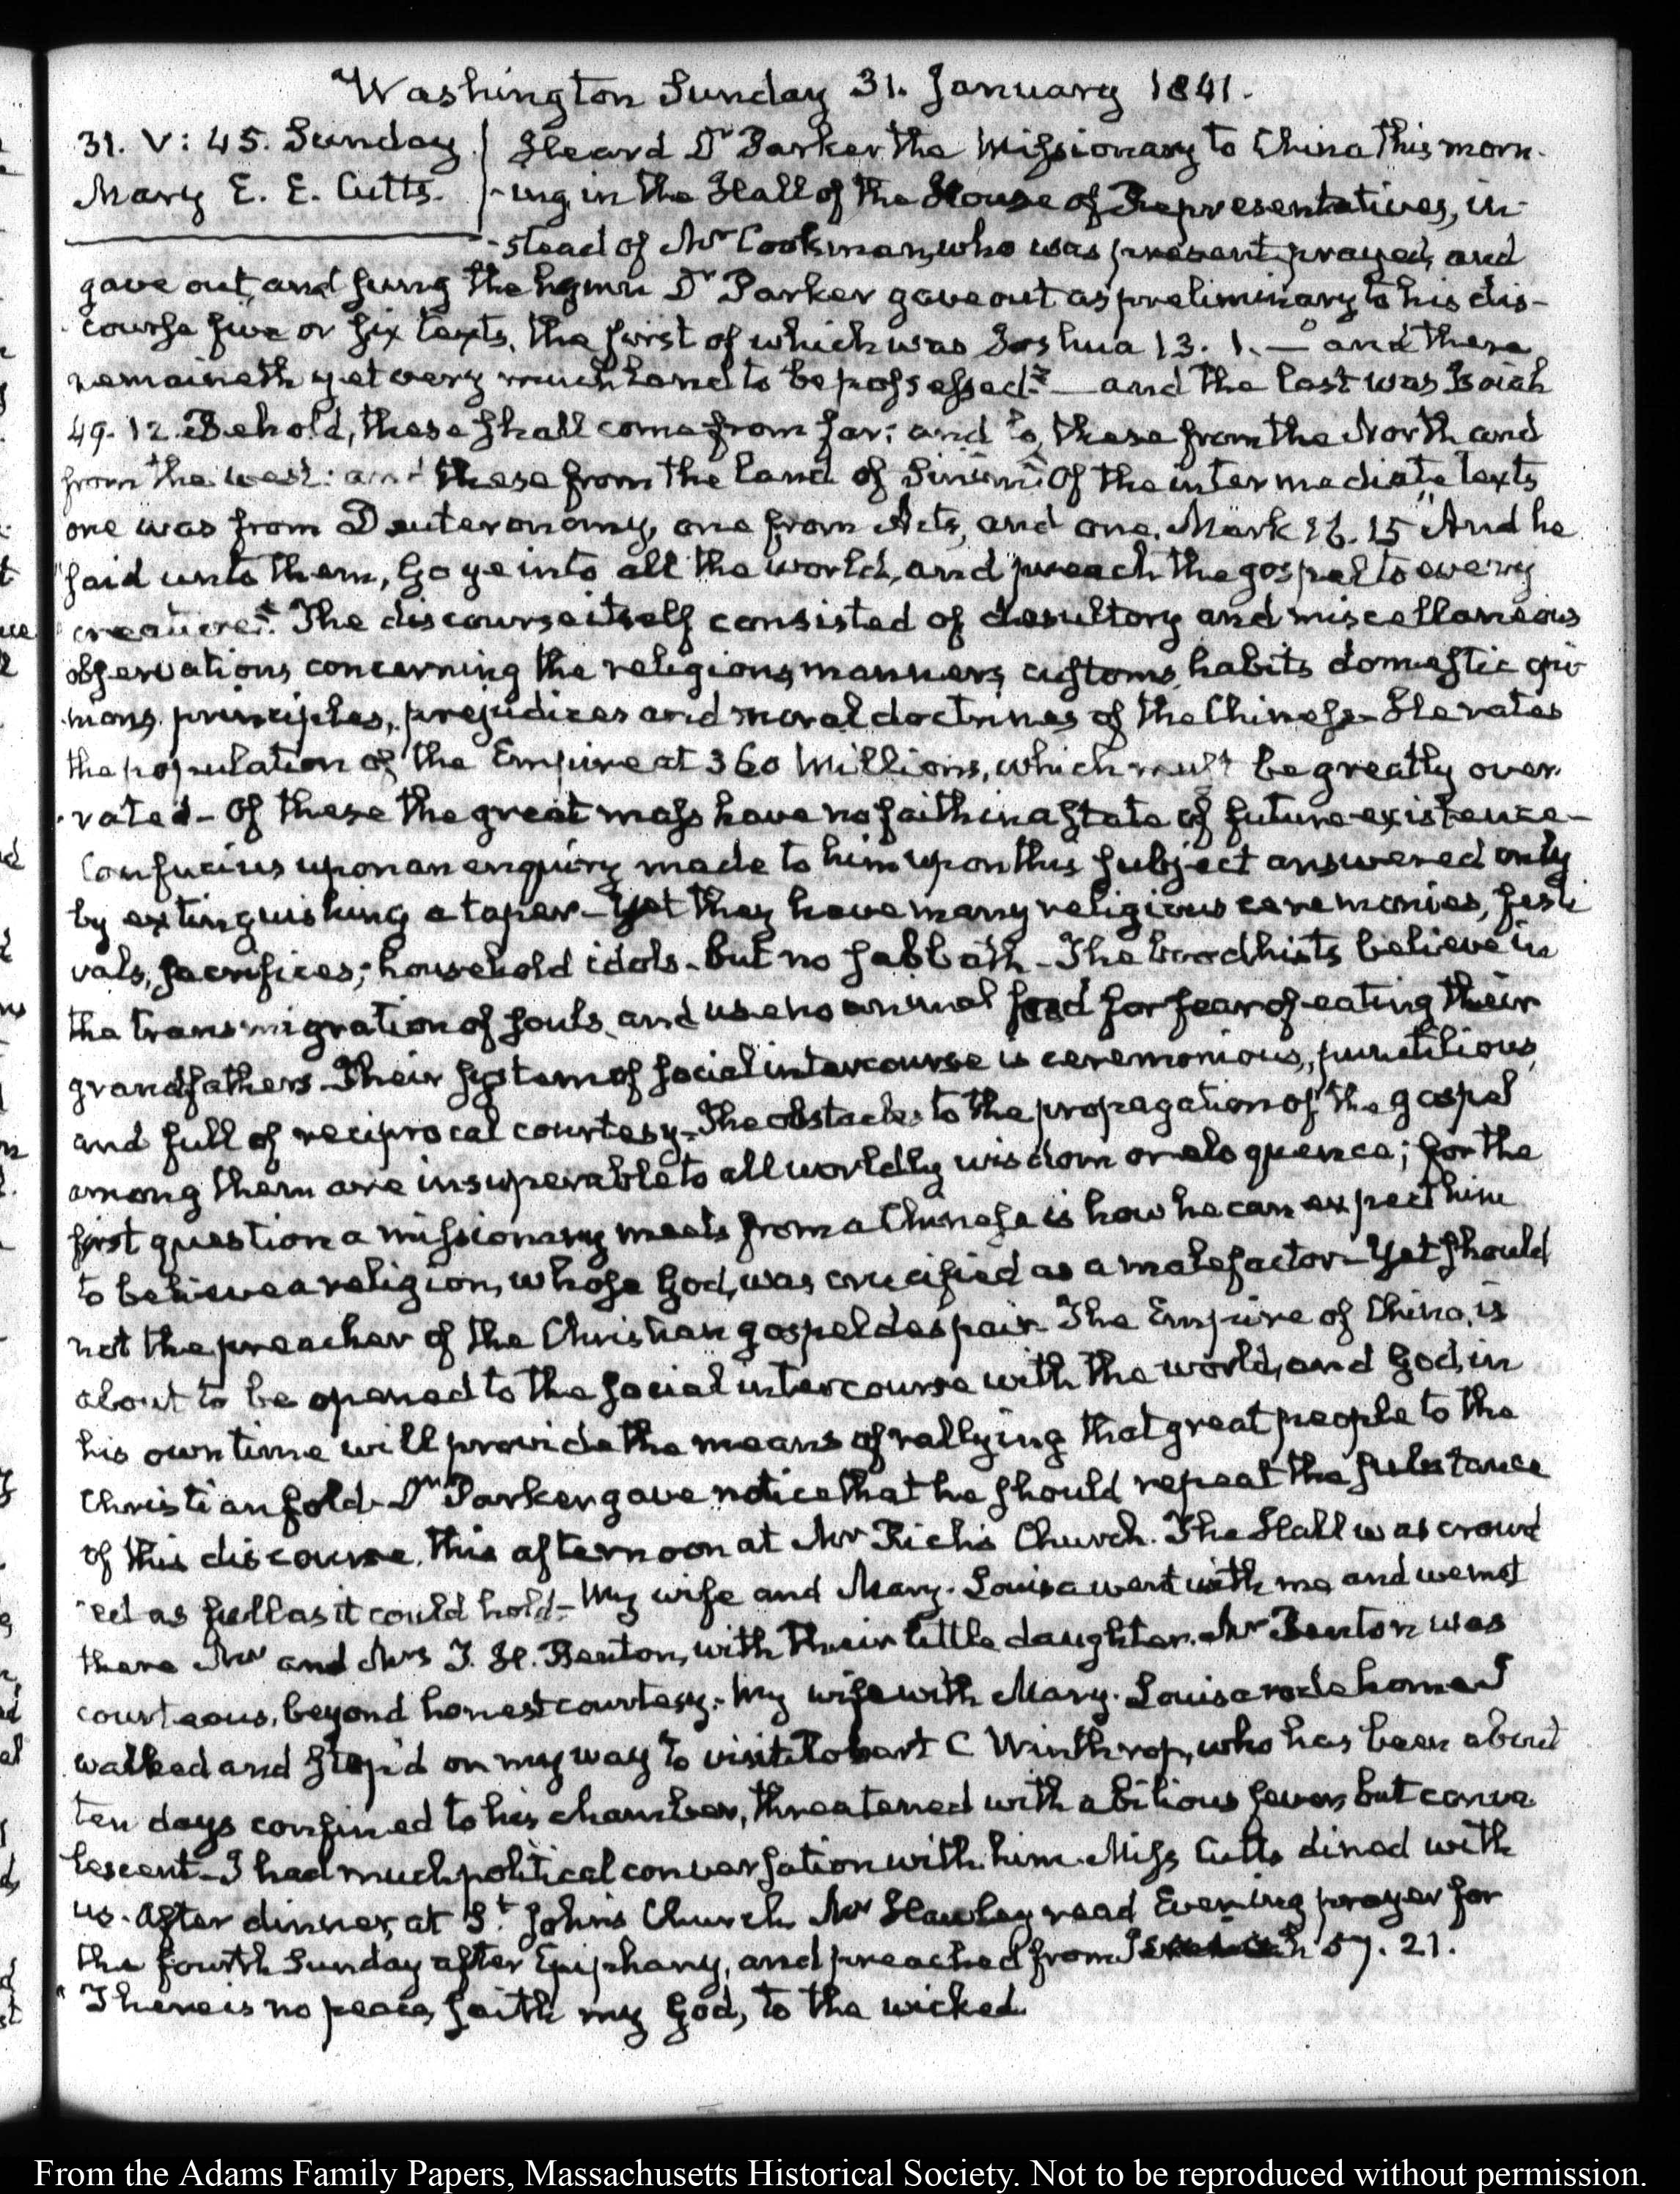 Washington Sunday 31. January 1841.
31. V: 45. Sunday
Mary E. E. Cutts.
Heard Dr Parker the Missionary to China this morn-
-ing, in the Hall of the House of Representatives, in-
-stead of Mr Cookman, who was present, prayed, and
gave out, and sung the hymn Dr Parker gave out as preliminary to his dis-
course five or six texts, the first of which was Joshua 13. 1. — "and there
remaineth yet very much land to be possessed" — and the last was Isaiah
49. 12. Behold, these shall come from far: and lo, these from the North and
from the west: and these from the land of Sinim. Of the intermediate texts
one was from Deuteronomy, one from Acts, and one, Mark 16. 15 "And he
"said unto them, Go ye into all the world, and preach the gospel to every
creature". The discourse itself consisted of desultory and miscellaneous
observations concerning the religions, manners, customs, habits domestic opi-
nions, principles, prejudices and moral doctrines of the Chinese- He rates
the population of the Empire at 360 Millions, which must be greatly over-
-rated- Of these the great mass have no faith in a state of future existence-
Confucius upon an enquiry made to him upon this subject answered only
by extinguishing a taper- Yet they have many religious ceremonies, festi
vals, sacrifices, household idols- but no sabbath- The boodhists believe in
the transmigration of souls, and use no animal food for fear of eating their
grandfathers- Their system of social intercourse is ceremonious, punctilious,
and full of reciprocal courtesy- The obstacles to the propagation of the gospel
among them are insuperable to all worldly wisdom or eloquence; for the
first question a missionary meets from a Chinese is how he can expect him
to believe a religion, whose God, was crucified as a malefactor- Yet should
not the preacher of the Christian gospel despair- The Empire of China, is
about to be opened to the social intercourse with the world, and God, in
his own time will provide the means of rallying that great people to the
Christian fold- Dr Parker gave notice that he should repeat the substance
of this discourse, this afternoon at Mr Rich's Church. The Hall was crowd
-ed as full as it could hold- My wife and Mary-Louisa went with me and we met
there Mr and Mrs T. H. Benton, with their little daughter. Mr Benton was
courteous, beyond honest courtesy- My wife with Mary-Louisa rode home I
walked and stop'd on my way to visit Robert C Winthrop, who has been about
ten days confined to his chamber, threatened with a bilious fever but conva-
lescent- I had much political conversation with him. Miss Cutts dined with
us. After dinner, at St John's Church Mr Hawley read Evening prayer for
the fourth Sunday after Epiphany, and preached from 57. 21.
"There is no peace, saith my God, to the wicked
From the Adams Family Papers, Massachusetts Historical Society. Not to be reproduced without permission.